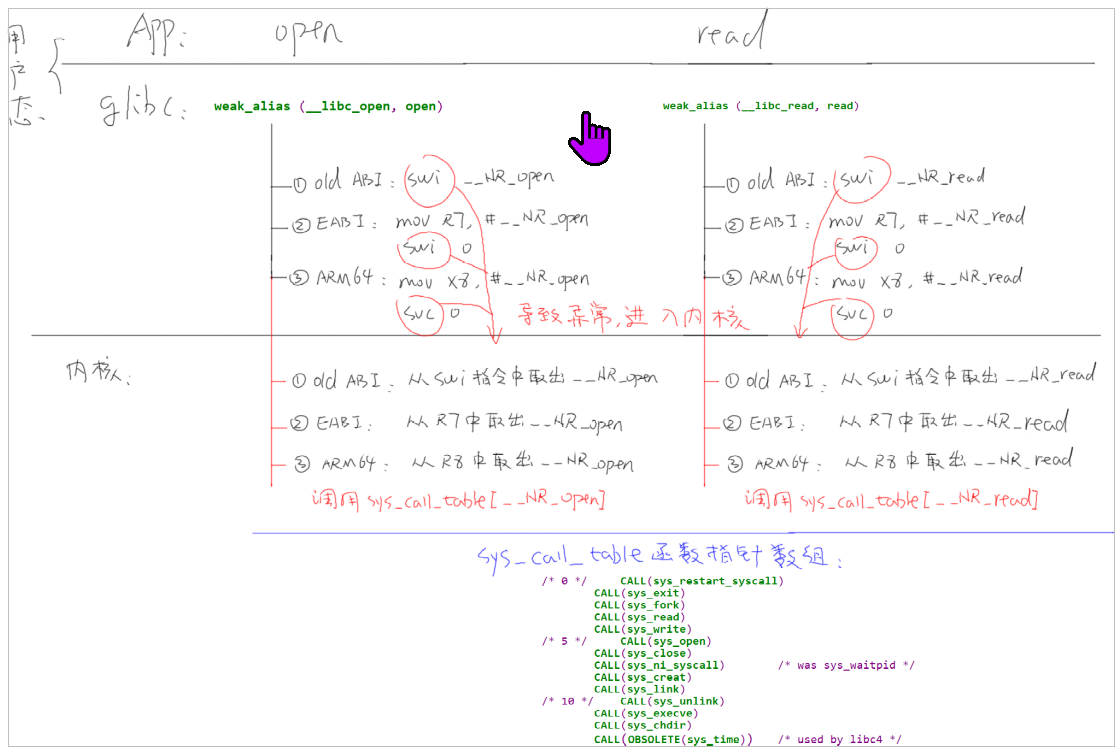 用户态.
App: open read
glibc:
weak_alias (__libc_open, open)
① old ABI: swi __NR_open
② EABI: mov R7, #__NR_open
swi 0
③ ARM64: mov X8, #__NR_open
svc 0
weak_alias (__libc_read, read)
① old ABI: swi __NR_read
② EABI: mov R7, #__NR_read
swi 0
③ ARM64: mov X8, #__NR_read
svc 0
导致异常,进入内核
内核:
① old ABI: 从swi指令中取出__NR_open
② EABI: 从R7中取出__NR_open
③ ARM64: 从R8中取出__NR_open
调用sys_call_table[__NR_open]
① old ABI: 从swi指令中取出__NR_read
② EABI: 从R7中取出__NR_read
③ ARM64: 从R8中取出__NR_read
调用sys_call_table[__NR_read]
sys_call_table函数指针数组:
/* 0 */ CALL(sys_restart_syscall)
CALL(sys_exit)
CALL(sys_fork)
CALL(sys_read)
CALL(sys_write)
/* 5 */ CALL(sys_open)
CALL(sys_close)
CALL(sys_ni_syscall) /* was sys_waitpid */
CALL(sys_creat)
CALL(sys_link)
/* 10 */ CALL(sys_unlink)
CALL(sys_execve)
CALL(sys_chdir)
CALL(OBSOLETE(sys_time)) /* used by libc4 */